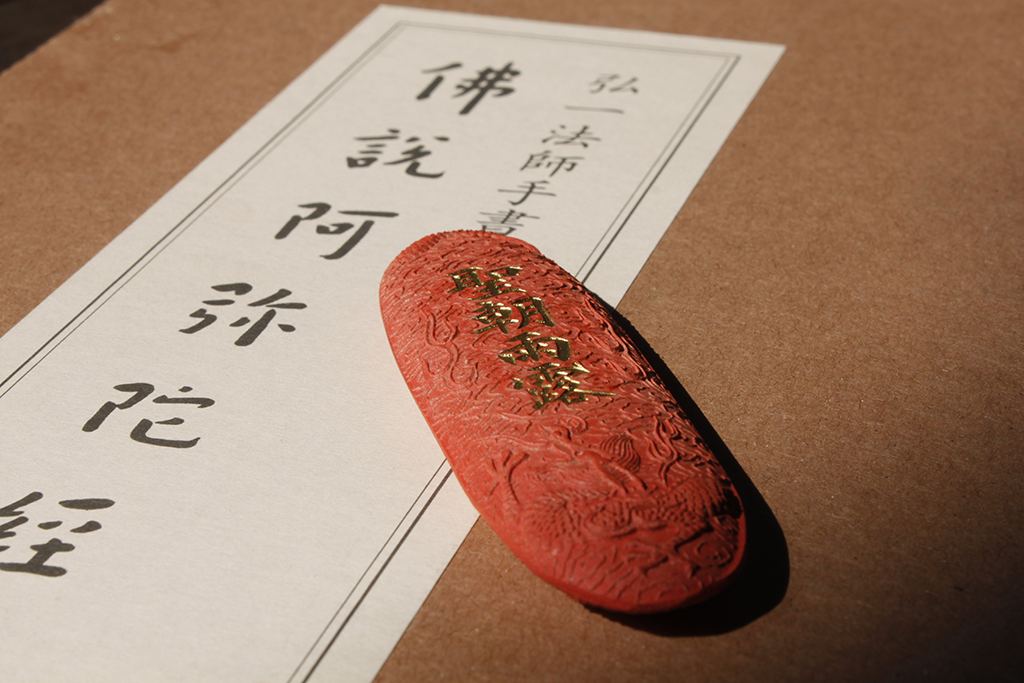 弘一法師手書
佛說阿弥陀經
聖朝雨露